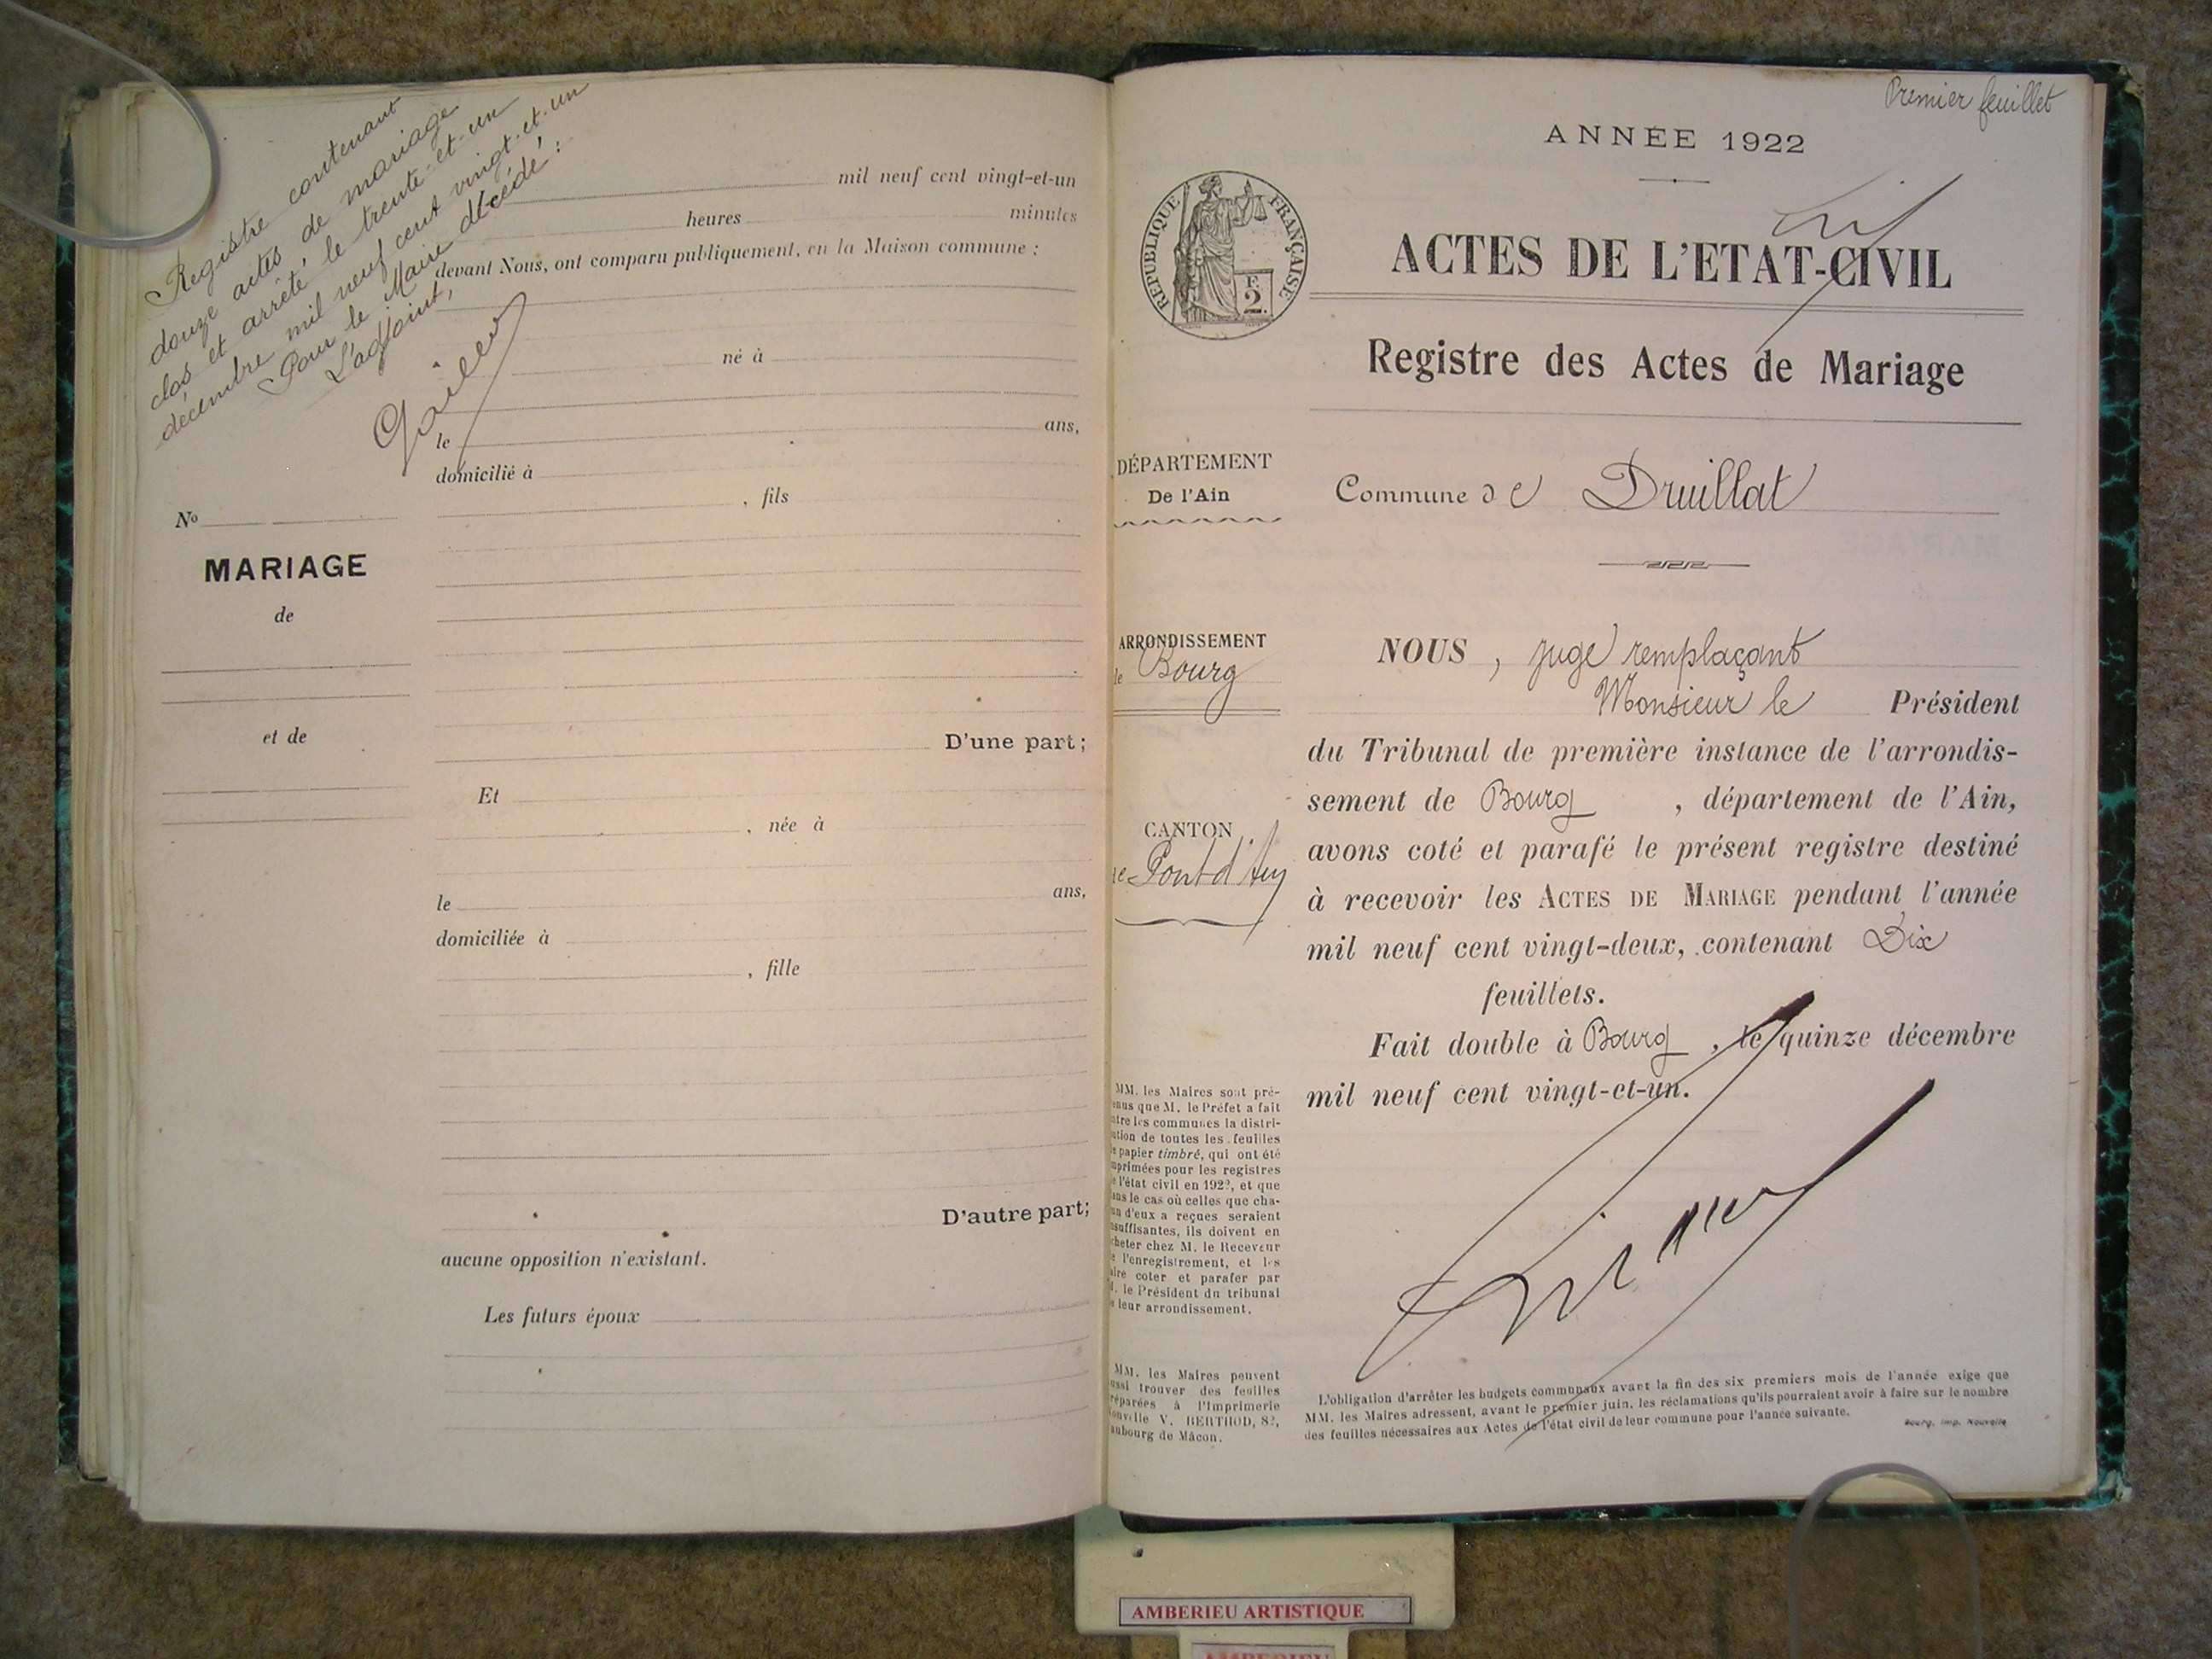 Registre contenant
douze actes de mariage
clos et arrêté, le trente-et-un
décembre mil neuf cent vingt-et-un
Pour le Maire décédé :
L'adjoint,
mil neuf cent vingt-et-un
heures minutes
devant Nous, ont comparu publiquement, en la Maison commune :
né à
le ans,
domicilié à
, fils
No
MARIAGE
de
et de
D'une part;
Et
, née à
le ans,
domiciliée à
, fille
D'autre part;
aucune opposition n'existant.
Les futurs époux
Premier feuillet
ANNÉE 1922
RÉPUBLIQUE FRANÇAISE
F.
2.
ACTES DE L'ETAT-CIVIL
Registre des Actes de Mariage
DÉPARTEMENT
De l'Ain
Commune de Druillat
ARRONDISSEMENT
de Bourg
CANTON
de Pont d'Ain
NOUS, juge remplaçant
Monsieur le Président
du Tribunal de première instance de l'arrondis-
sement de Bourg , département de l'Ain,
avons coté et parafé le présent registre destiné
à recevoir les ACTES DE MARIAGE pendant l'année
mil neuf cent vingt-deux, contenant Dix
feuillets.
Fait double à Bourg , le quinze décembre
mil neuf cent vingt-et-un.
MM. les Maires sont pré-
nus que M. le Préfet a fait
tre les communes la distri-
ution de toutes les feuilles
e papier timbré, qui ont été
mprimées pour les registres
e l'état civil en 1922, et que
ans le cas où celles que cha-
un d'eux a reçues seraient
suffisantes, ils doivent en
cheter chez M. le Receveur
e l'enregistrement, et les
aire coter et parafer par
M. le Président du tribunal
e leur arrondissement.
MM. les Maires peuvent
ussi trouver des feuilles
réparées à l'Imprimerie
ouvelle V. BERTHOD, 82,
aubourg de Mâcon.
L'obligation d'arrêter les budgets communaux avant la fin des six premiers mois de l'année exige que
MM. les Maires adressent, avant le premier juin, les réclamations qu'ils pourraient avoir à faire sur le nombre
des feuilles nécessaires aux Actes de l'état civil de leur commune pour l'année suivante.
Bourg, Imp. Nouvelle
AMBERIEU ARTISTIQUE
AMBERIEU